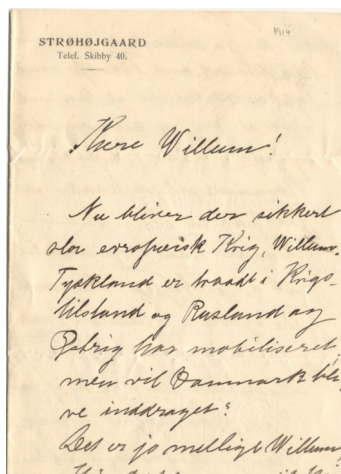 STRØHØJGAARD
Telef. Skibby 40.
1914
Kære Willum!
Nu bliver der sikkert
stor evropæisk Krig, Willum.
Tyskland er traadt i Krigs-
tilstand og Rusland og
har mobiliseret,
men vil Danmark bli-
ve inddraget?
Det er jo muligt Willum